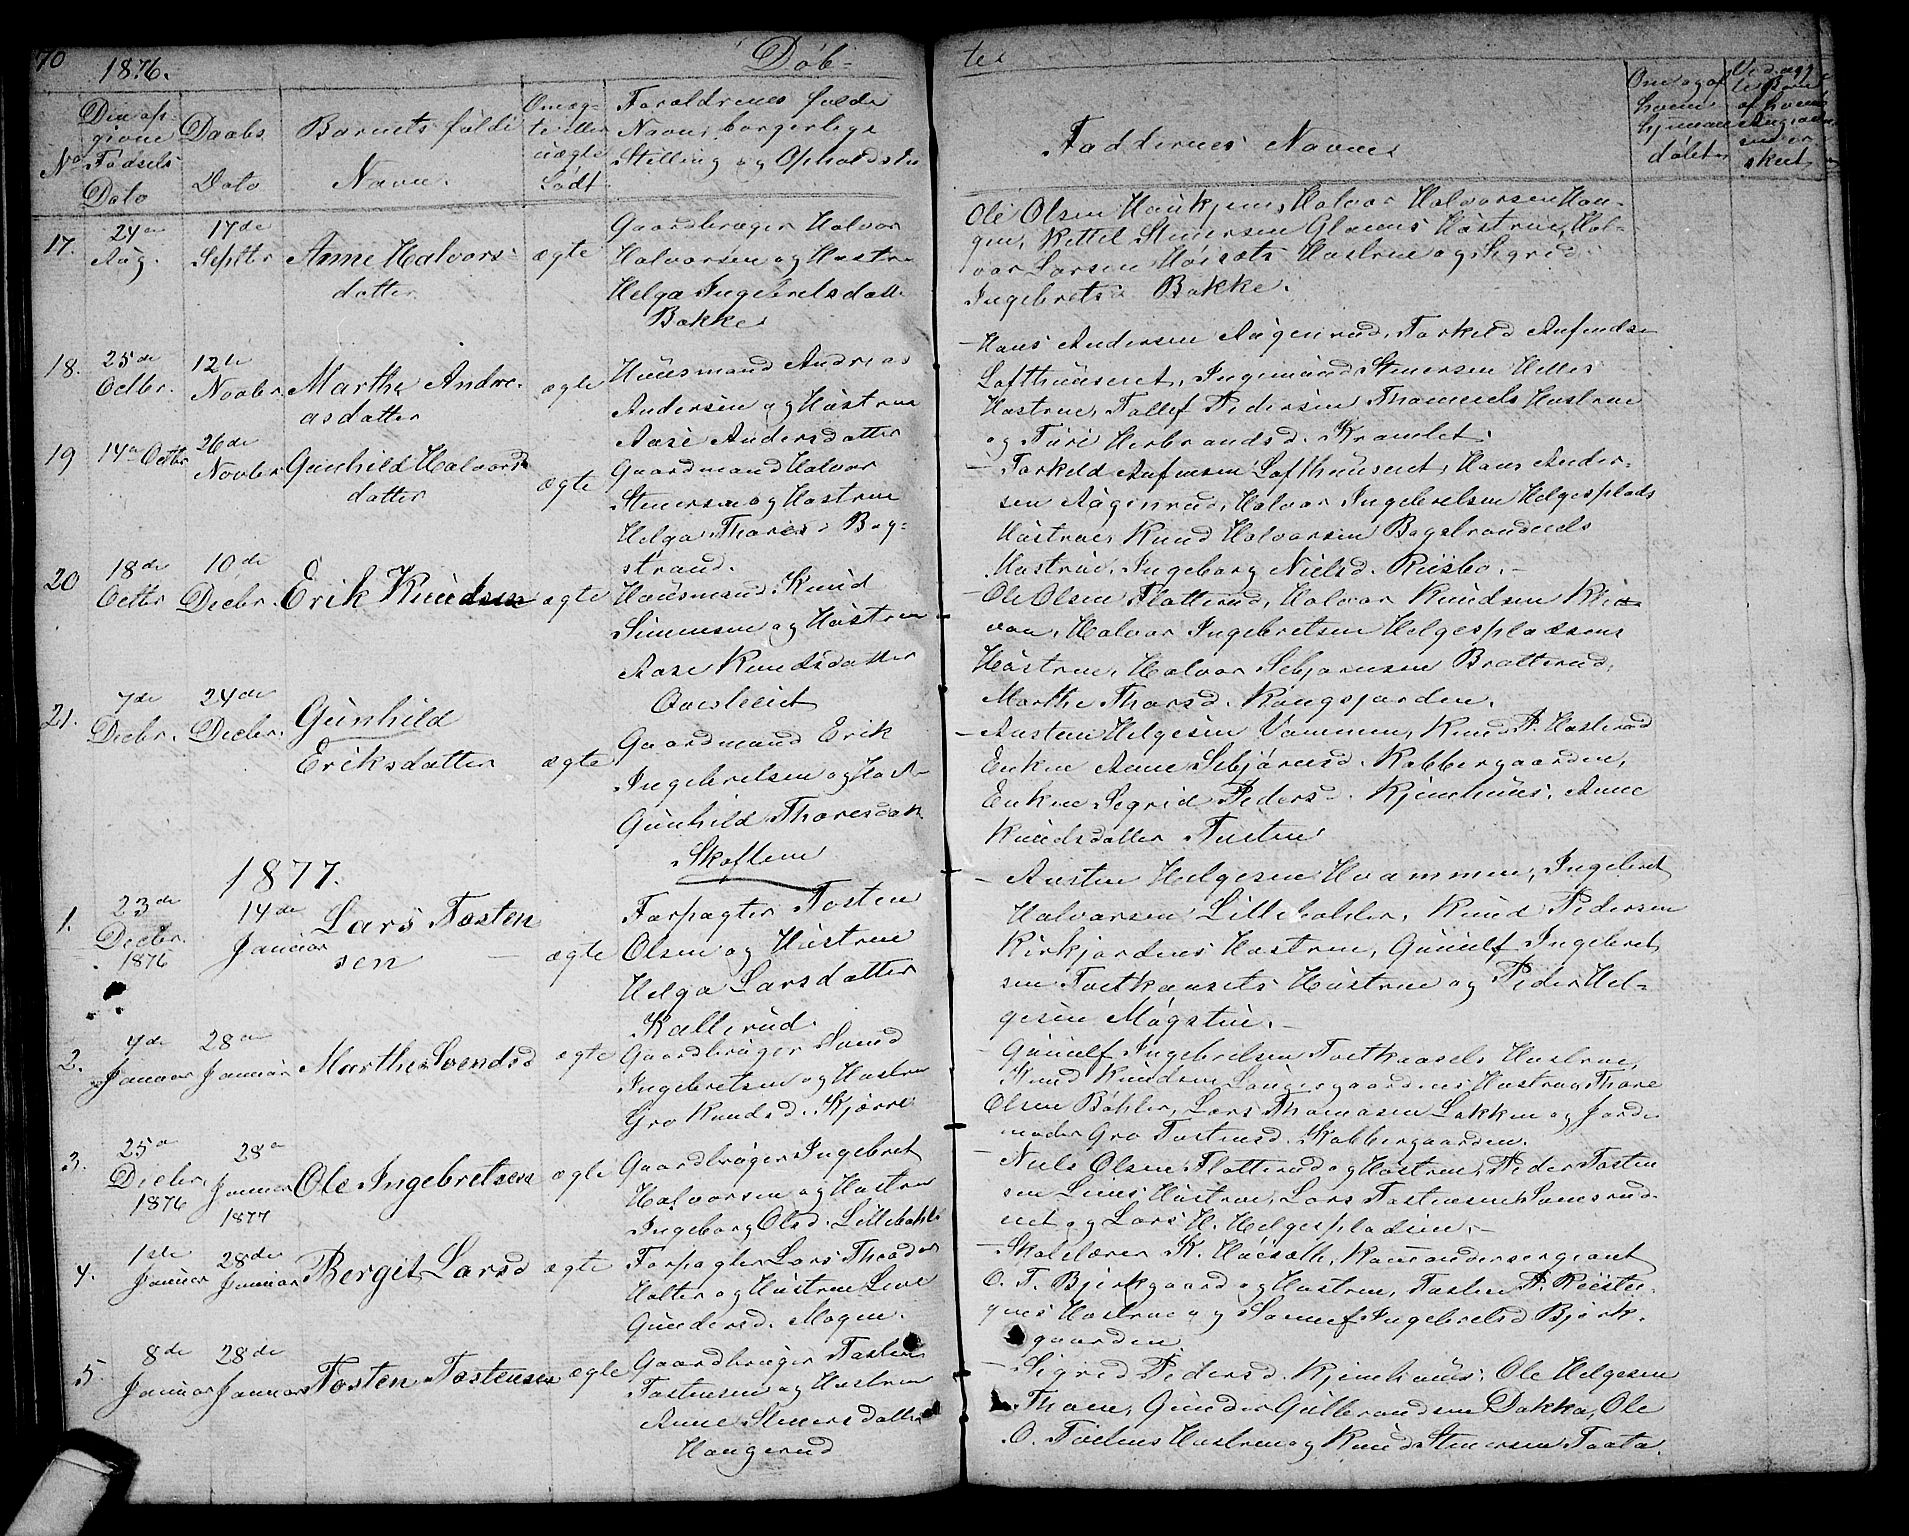 70
1876.
Døb-
te
No
Den op-
givne
Fødsels
Dato
Daabs
Dato
Barnets fulde
Navn.
Om æg-
te eller
uægte
født.
Forældrenes fulde
Navn, borgerlige
Stilling og Opholds
Faddernes Navne
Om og af
hvem
hjemme
døbt
17.
24de
Aug.
17de
Septbr
Anne Halvors-
datter
ægte
Gaardbruger Halvor
Halvorsen og Hustru
Helga Ingebretsdatt
Bakke
Ole Olsen Haukjem, Halvor Halvorsen Hau-
gen, Kettel Stenersen Hustrue, Hal-
vor Larsen Høisæts Hustrue og Sigrid
Ingebretsd Bakke.
18.
25de
Octbr.
12te
Novbr
Marthe Andre-
asdatter
ægte
Huusmand Andreas
Andersen og Hustrue
Aase Andersdatter
Hans Andersen Aagenrud, Torkild Aufindsen
Lofthuuseiet, Ingemund Stenersen Helles
Hustrue, Tollef Pedersen Hustrue
og Turi Herbrandsd. Kramlet.
19
14de Octbr
26de
Novbr
Gunhild Halvors
datter
ægte
Gaardmand Halvor
Stenersen og Hustrue
Helga Thoresd Bog-
strand.
Torkild Aufinsen Lofthuuseiet, Hans Ander-
sen Aagenrud, Halvor Ingebretsen Helgesplads
Hustrue, Knud Halvorsen
Hustrue, Ingeborg Nielsd. Ruisbo.
20
18de
Octbr
10de
Decbr.
Erik Knudsen
ægte
Huusmand Knud
Simensen og Hustrue
Aase Knudsdatter
Ole Olsen Flatterud, Halvor Knudsen
Halvor Ingebretsen Helgespladsens
Hustrue, Halvor Sebjørnsen Bratterud,
Marthe Thorsd. Kongsjorden.
21.
7de
Decbr.
24de
Decbr.
Gunhild
Eriksdatter
ægte
Gaardmand Erik
Ingebretsen og Hust
Gunhild Thoresdatt
Skoftem
Austen Helgesen Vammen, Knud P. Hasterud
Enken Anne Sebjørnsd. Kobbergaarden,
Enken Sigrid Pedersd. Kjemhuus, Anne
Knudsdatter Tusten
1877.
1.
23de
Decbr.
1876
14de
Januar
Lars Tosten
sen
ægte
Forpagter Tosten
Olsen og Hustrue
Helga Larsdatter
Kallerud.
Austen Helgesen Hvammen, Ingebret
Halvorsen Lillebøhler, Knud Pedersen
Kirkjordnes Hustrue, Gunulf Ingebret
sen Hustrue og Peder Hel-
gesen Mogstue.
2.
4de
Januar
28de
Januar
Marthe Svendsd
ægte
Gaardbruger Svend
Ingebretsen og Hustrue
Gro Knudsd. Kjørre
Gunulf Ingebretsen Hustrue,
Knud Knudsen Hustrue, Thore
Olsen Bøhler, Lars Thomasen Lakken og Jorde-
moder Gro Tostensd. Kobbergaarden.
3.
25de
Decbr
1876
28de
Januar
1877
Ole Ingebretsen
ægte
Gaardbruger Ingebret
Halvorsen og Hustrue
Ingeborg Olsd. Lillebøhle
Niels Olsen Flatterud og Hustrue, Peder Tosten
sen Liens Hustrue, Lars Tostensen
og Lars H. Helgespladsen.
4.
1ste
Januar
28de
Januar
Bergit Larsd
ægte
Forpagter Lars Theodor
Holter og Hustrue Live
Gundersd. Moen.
Skolelærer K. Høisæth, Kommandersergeant
O. T. Bjerkgaard og Hustrue, Tosten P.
Hustrue og Ingebretsd Bjerk-
gaarden
5.
8de
Januar
28de
Januar
Tosten Tostensen
ægte
Gaardbruger Tosten
Tostensen og Hustrue
Anne Stenersdatter
Haugerud
Sigrid Pedersd. Kjemhuus, Ole Helgesen
Thoen, Gunder Gulbrandsen Dokka, Ole
O. Hustrue og Knud Stenersen Taata.